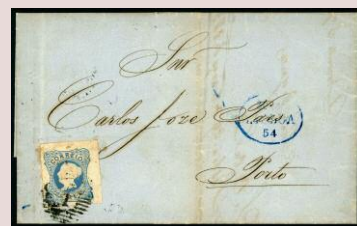 Snr
Carlos Jose Paes
54
Porto
CORREIO